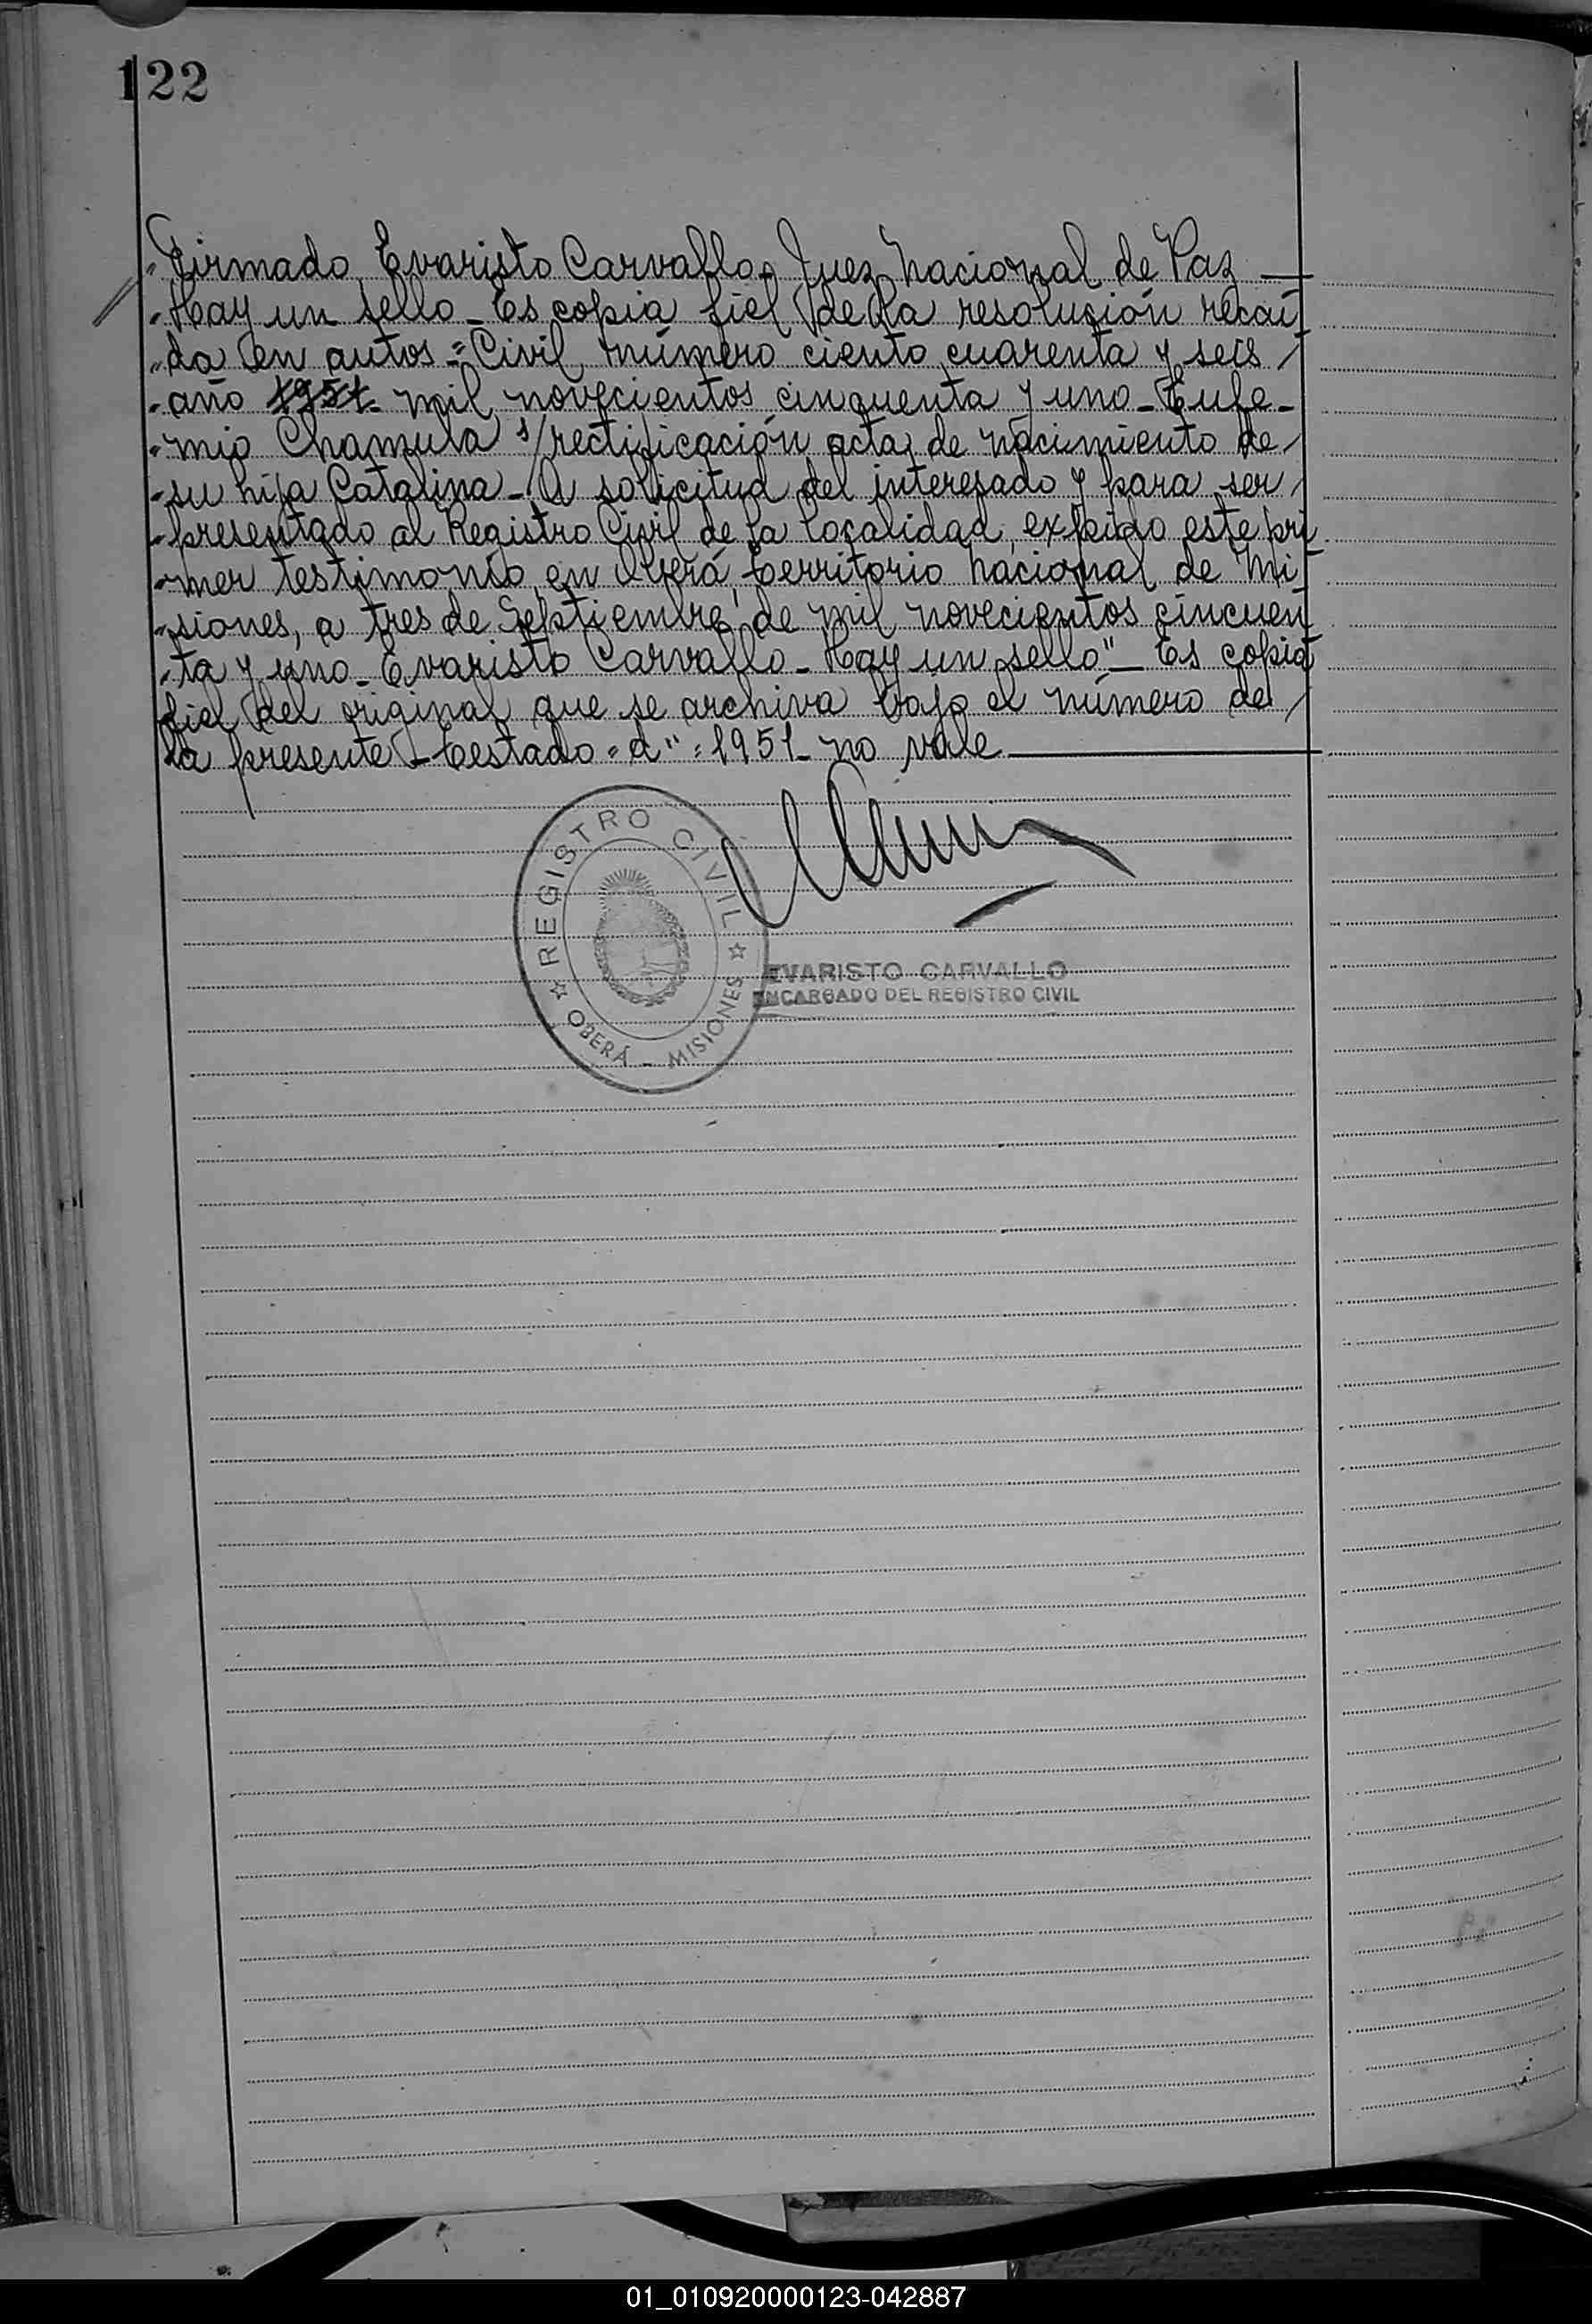 122
"Firmado Evaristo Carvallo. Juez Nacional de Paz
"Hay un sello - Es copia fiel de la resolución recaí
"da en autos = Civil número ciento cuarenta y seis /
"año 1951- mil novecientos cincuenta y uno - Eufe-
"mio Chamula s/rectificación acta de nacimiento de /
"su hija Catalina - A solicitud del interesado y para ser /
"presentado al Registro Civil de la localidad, expido este pri
"mer testimonio, en Oberá, territorio nacional de Mi
"siones, a tres de Septiembre, de mil novecientos cincuen
"ta y uno - Evaristo Carvallo - Hay un sello" - Es copia
fiel del original que se archiva bajo el número de /
la presente - testado = d" = 1951 - no vale
REGISTRO CIVIL
OBERÁ - MISIONES
EVARISTO CARVALLO
ENCARGADO DEL REGISTRO CIVIL
01_010920000123-042887